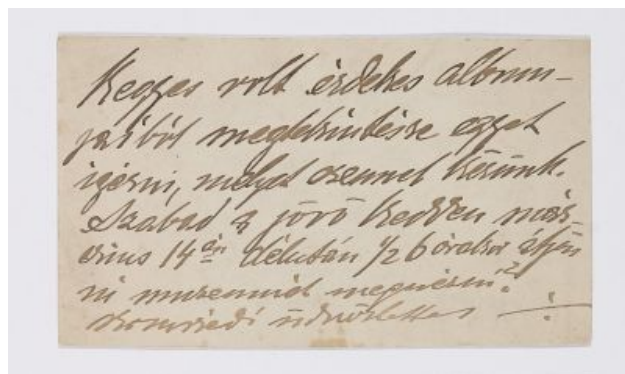 Kegyes volt érdekes album-
jaiból megtekintésre egyet
igérni, melyet ezennel kérünk.
Szabad a jövő kedden már-
cius 14 én délután ½ 6 órakor átjön
ni muzeumát megnézni?
szomszédi üdvözlettel